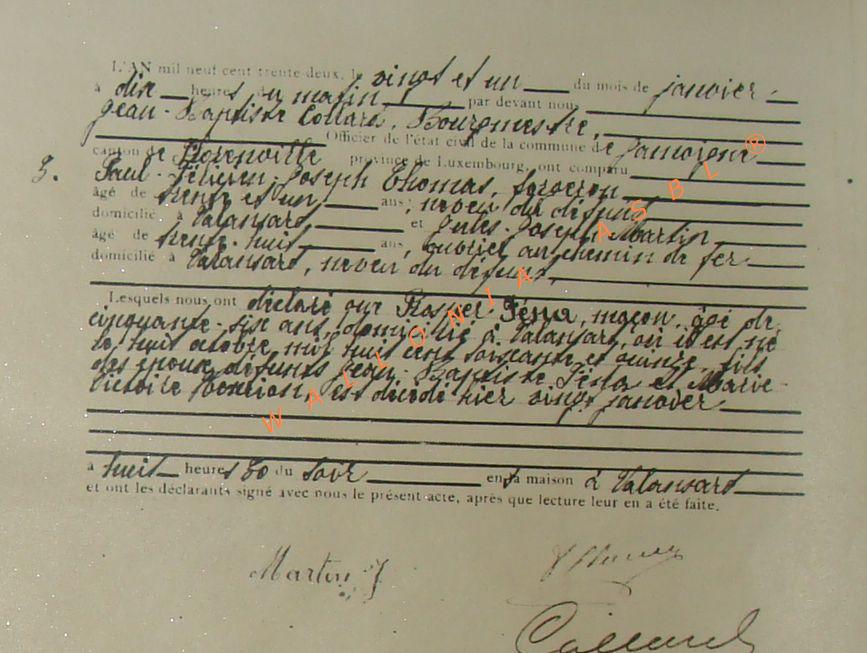 L'AN mil neuf cent trente-deux, le vingt et un du mois de janvier
à dix heures du matin par devant nous
Jean-Baptiste Collard, Bourgmestre,
Officier de l'état civil de la commune de Jamoigne
canton de Florenville province de Luxembourg, ont comparu
3. Paul-Félicien-Joseph Thomas, forgeron
âgé de trente et un ans, neveu du défunt
domicilié à Valansart et Jules-Joseph Martin
âgé de trente-huit ans, ouvrier au chemin de fer
domicilié à Valansart, neveu du défunt,
Lesquels nous ont déclaré que Prosper Féna, maçon, âgé de
cinquante-six ans, domicilié à Valansart, où il est né
le huit octobre mil huit cent soixante et quinze, fils
des époux défunts Jean-Baptiste Féna et Marie-
Victoire Henrion, est décédé hier vingt janvier
à huit heures 30 du soir en sa maison à Valansart
et ont les déclarants signé avec nous le présent acte, après que lecture leur en a été faite.
Martin J
Collard
WALLONIA ASBL ®